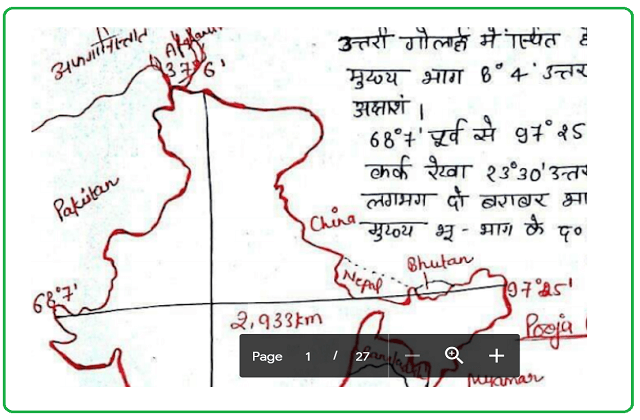 उत्तरी गोलार्द्ध में स्थित है
मुख्य भाग 8°4' उत्तर
अक्षांश ।
68°7' पूर्व से 97°25
कर्क रेखा 23°30' उत्तर
लगभग दो बराबर भा
मुख्य भू - भाग के द०
अफगानिस्तान
37°6'
Pakistan
China
Nepal
Bhutan
68°7'
97°25'
2,933km
Pooja
Page 1 / 27
Myanmar